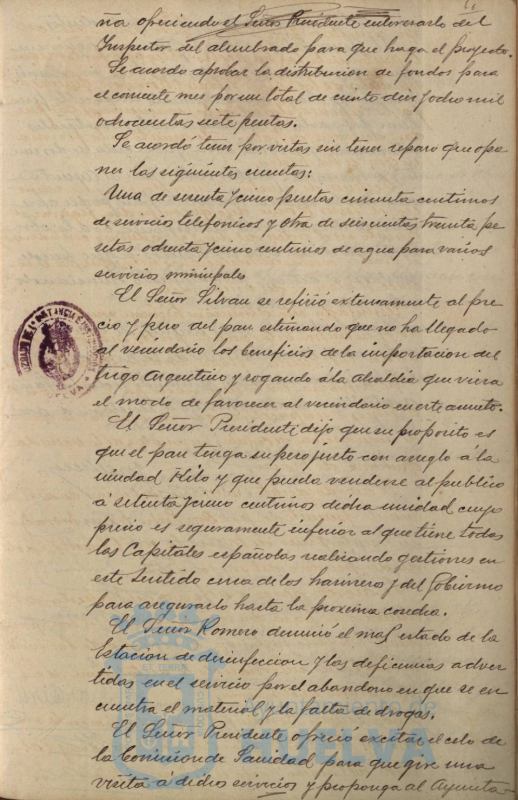 ofreciendo el Señor Presidente enterarlo del
Inspector del alumbrado para que haga el proyecto.
Se acordo aprobar la distribucion de fondos para
el corriente mes por un total de ciento diez y ocho mil
ochocientas siete pesetas.
Se acordó tener por vistas sin tener reparo que opo
ner las siguientes cuentas:
Una de setenta y cinco pesetas cincuenta centimos
de servicios telefonicos y otra de seiscientas treinta pe
setas ochenta y cinco centimos de agua para varios
servicios municipales
El Señor Silvan se refirió extensamente al pre
cio y peso del pan estimando que no ha llegado
al vecindario los beneficios de la importacion del
trigo Argentino y rogando á la Alcaldia que viera
el modo de favorecer al vecindario en este asunto.
El Señor Presidente dijo que su proposito es
que el pan tenga su peso justo con arreglo á la
unidad Kilo y que pueda venderse al publico
á setenta y cinco centimos dicha unidad cuyo
precio es seguramente inferior al que tiene todas
las Capitales españolas realizando gestiones en
este sentido cerca de los harineros y del Gobierno
para asegurarlo hasta la proxima cosecha.
El Señor Romero denunció el mal estado de la
Estacion de desinfeccion y las deficiencias adver
tidas en el servicio por el abandono en que se en
cuentra el material y la falta de drogas.
El Señor Presidente ofreció excitar el celo de
la Comision de Sanidad para que gire una
visita á dichos servicios y proponga al Ayunta-
HUELVA